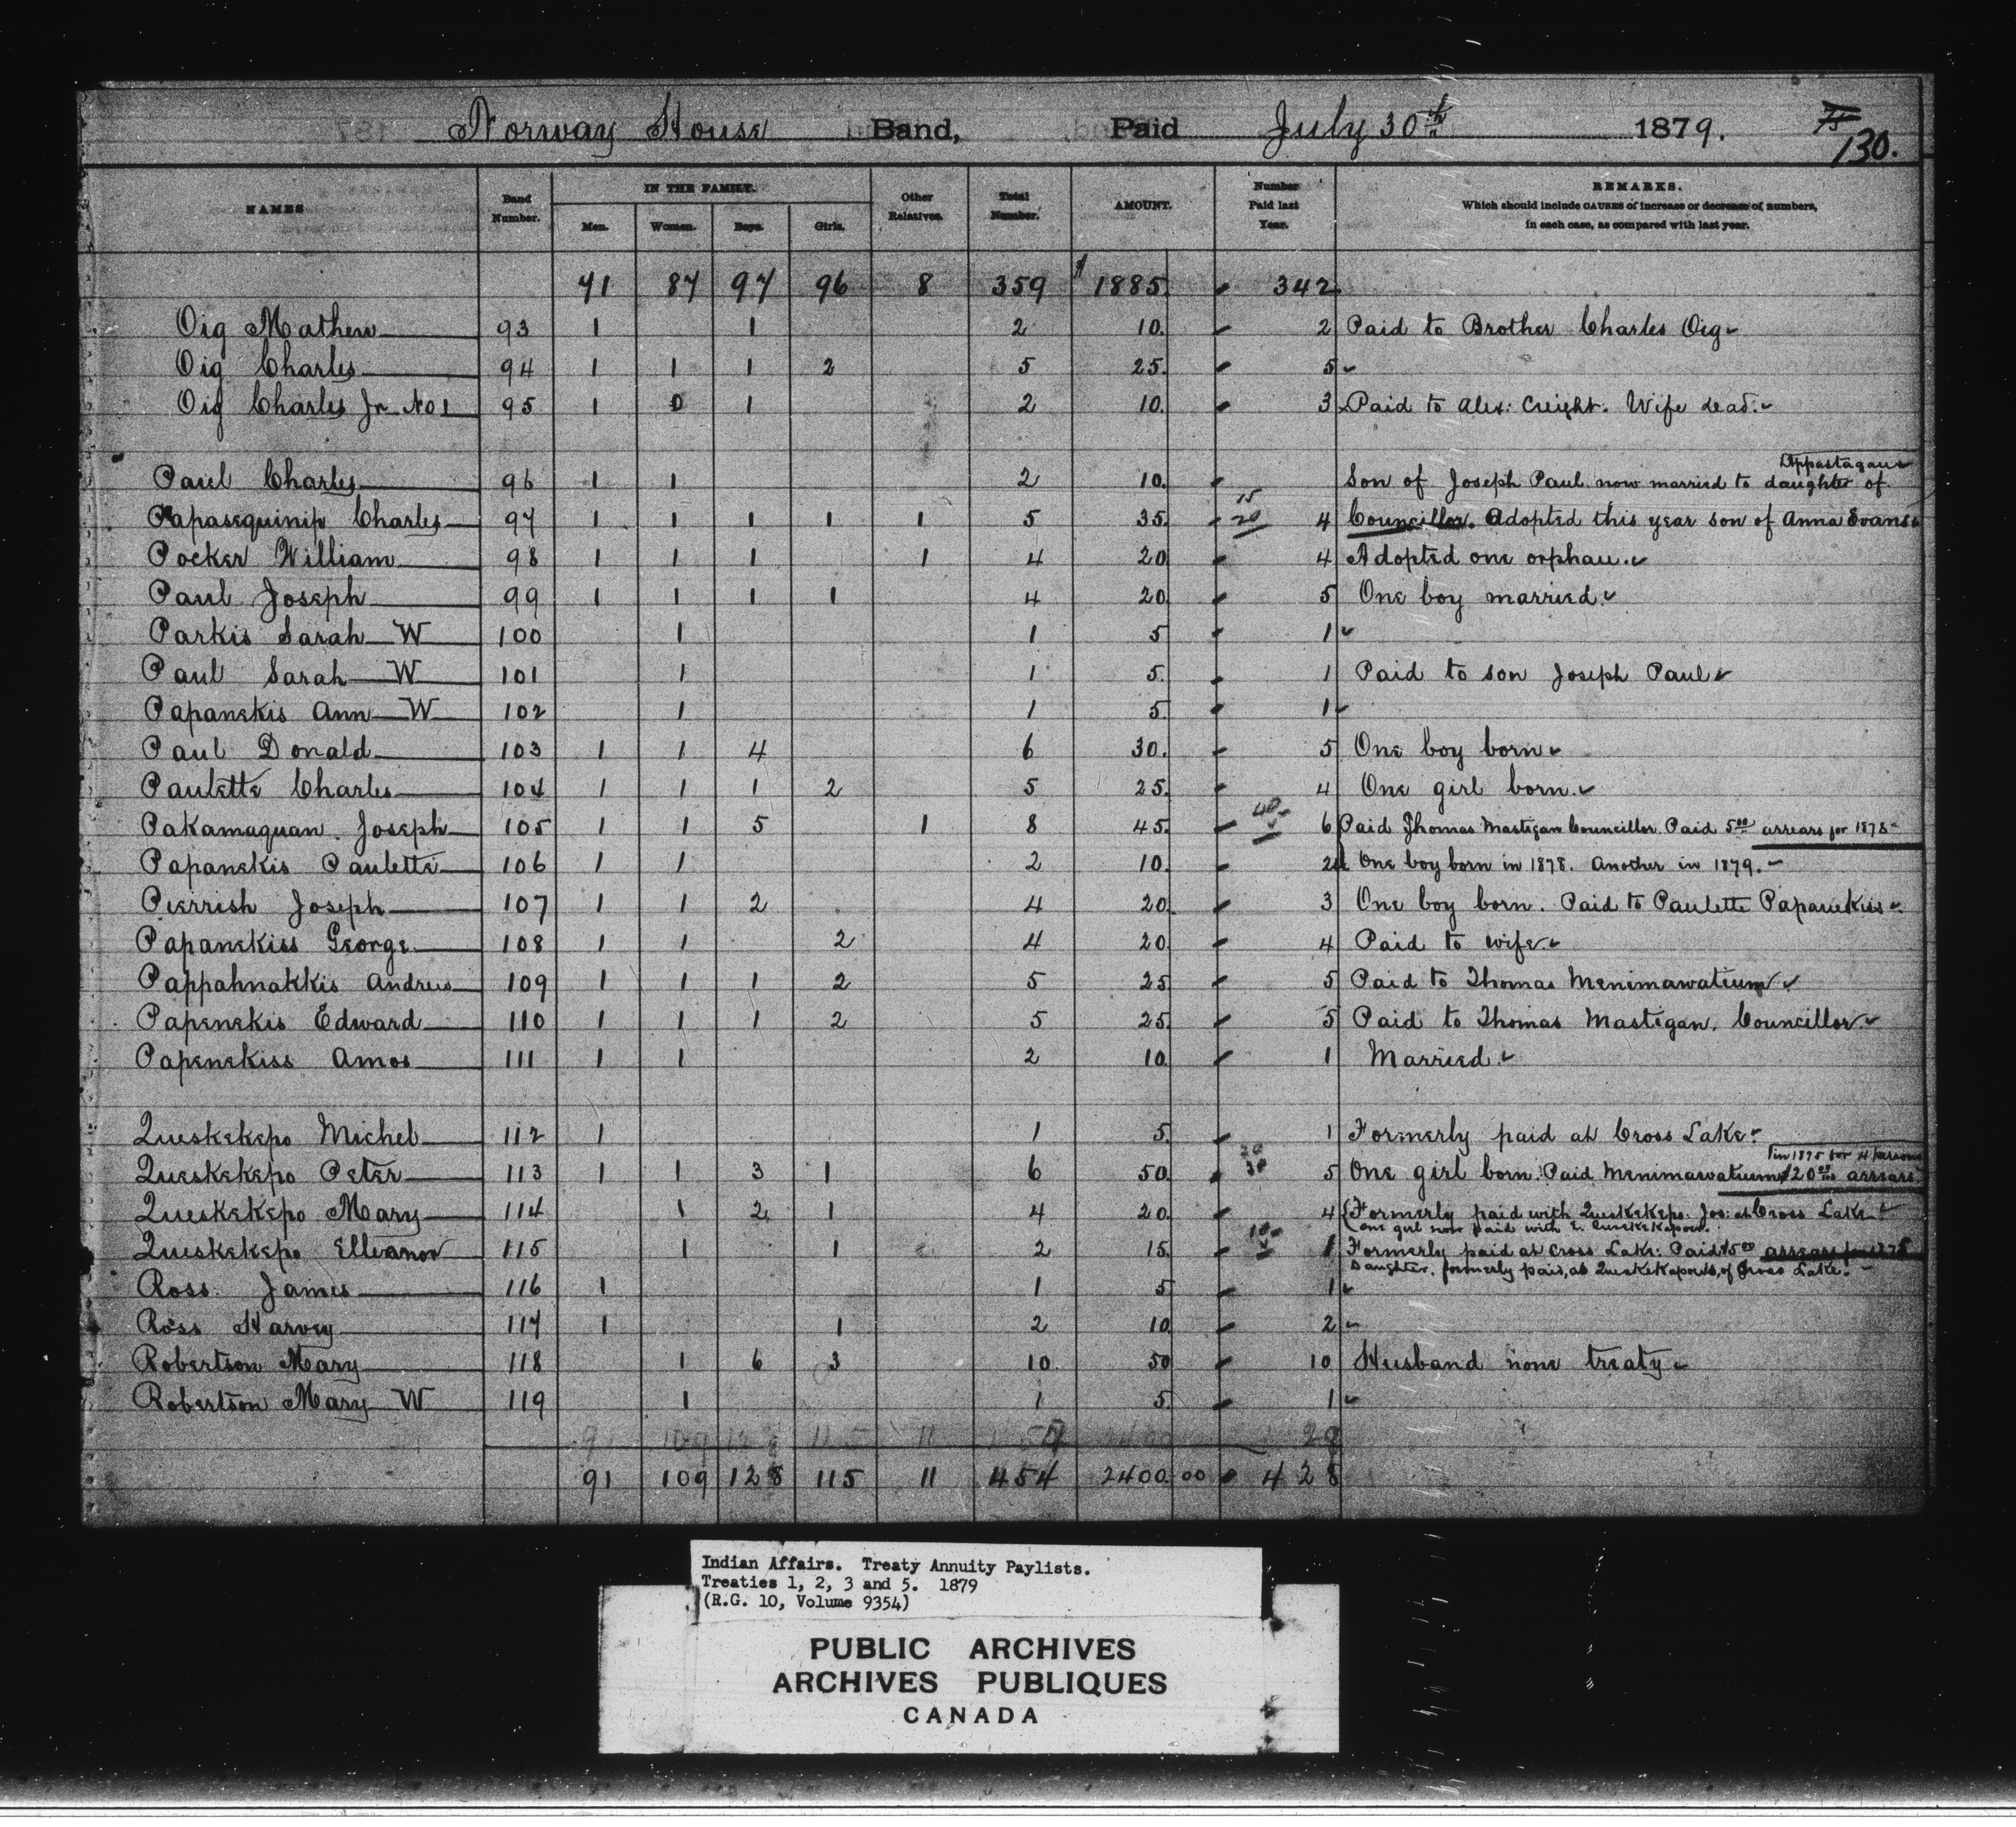 Norway House Band, Paid July 30th 1879. 130.
NAMES Band Number. IN THE FAMILY. Men. Women. Boys. Girls. Other Relatives. Total Number. AMOUNT. Number Paid last Year. REMARKS.
Which should include CAUSES of increase or decrease of numbers,
in each case, as compared with last year.
71 87 97 96 8 359 $1885. 342
Oig Mathew 93 1 1 2 10. 2 Paid to Brother Charles Oig
Oig Charles 94 1 1 1 2 5 25. 5
Oig Charles Jr No 1 95 1 0 1 2 10. 3 Paid to Alex: Creight. Wife dead.
Paul Charles 96 1 1 2 10. Son of Joseph Paul now married to daughter of
Papasequinip Charles 97 1 1 1 1 1 5 35. 15 20 4 Councillor. Adopted this year son of Anna Evans
Pocker William 98 1 1 1 1 4 20 4 Adopted one orphan.
Paul Joseph 99 1 1 1 1 4 20 5 One boy married.
Parkis Sarah W 100 1 1 5 1
Paul Sarah W 101 1 1 5. 1 Paid to son Joseph Paul
Papanekis Ann W 102 1 1 5. 1
Paul Donald 103 1 1 4 6 30. 5 One boy born
Paulette Charles 104 1 1 1 2 5 25. 4 One girl born.
Pakamaquan Joseph 105 1 1 5 1 8 45. 40 6 Paid Thomas Mastigan Councillor. Paid 5.00 arrears for 1878
Papanekis Paulette 106 1 1 2 10. 2 One boy born in 1878. Another in 1879.
Pierrish Joseph 107 1 1 2 4 20. 3 One boy born. Paid to Paulette Papanekiss
Papanekiss George 108 1 1 2 4 20 4 Paid to wife.
Pappahnakkis Andrew 109 1 1 1 2 5 25 5 Paid to Thomas Menimawatium
Papenekis Edward 110 1 1 1 2 5 25. 5 Paid to Thomas Mastigan. Councillor
Papenekiss Amos 111 1 1 2 10. 1 Married.
Queskekepo Michel 112 1 1 5. 1 Formerly paid at Cross Lake.
in 1875 for 4 persons
Queskekepo Peter 113 1 1 3 1 6 50. 20 30 5 One girl born. Paid Menimawatium $20.00 arrears
Queskekepo Mary 114 1 2 1 4 20. 4 Formerly paid with Queskekepo. Jos: at Cross Lake
one girl now paid with E.
Queskekepo Elleanor 115 1 1 2 15. 10 1 Formerly paid at Cross Lake: Paid $5.00 arrears
Daughter, formerly paid, as of Cross Lake.
Ross James 116 1 1 5 1
Ross Harvey 117 1 1 2 10 2
Robertson Mary 118 1 6 3 10. 50 10 Husband none treaty
Robertson Mary W 119 1 1 5. 1
91 109 128 115 11 454 2400.00 428
Indian Affairs. Treaty Annuity Paylists.
Treaties 1, 2, 3 and 5. 1879
(R.G. 10, Volume 9354)
PUBLIC ARCHIVES
ARCHIVES PUBLIQUES
CANADA